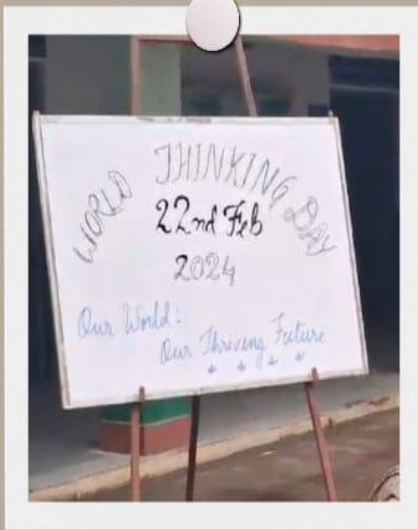 WORLD THINKING DAY
22nd Feb
2024
Our World:
Our Thriving Future